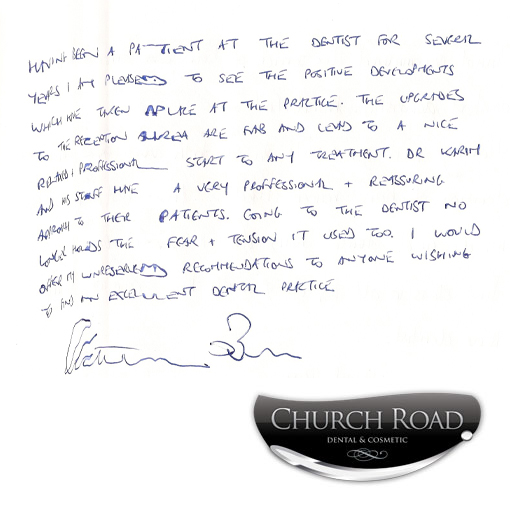 HAVING BEEN A PATIENT AT THE DENTIST FOR SEVERAL
YEARS I AM PLEASED TO SEE THE POSITIVE DEVELOPMENTS
WHICH HAVE TAKEN APLACE AT THE PRACTICE. THE UPGRADES
TO THE RECEPTION AREA ARE FAB AND LEAD TO A NICE
RELAXED + PROFFESSIONAL START TO ANY TREATMENT. DR KARIM
AND HIS STAFF HAVE A VERY PROFFESSIONAL + REASSURING
APPROACH TO THEIR PATIENTS. GOING TO THE DENTIST NO
LONGER HOLDS THE FEAR + TENSION IT USED TOO. I WOULD
OFFER MY UNRESERVED RECOMMENDATIONS TO ANYONE WISHING
TO FIND AN EXCELLENT DENTAL PRACTICE
CHURCH ROAD
DENTAL & COSMETIC